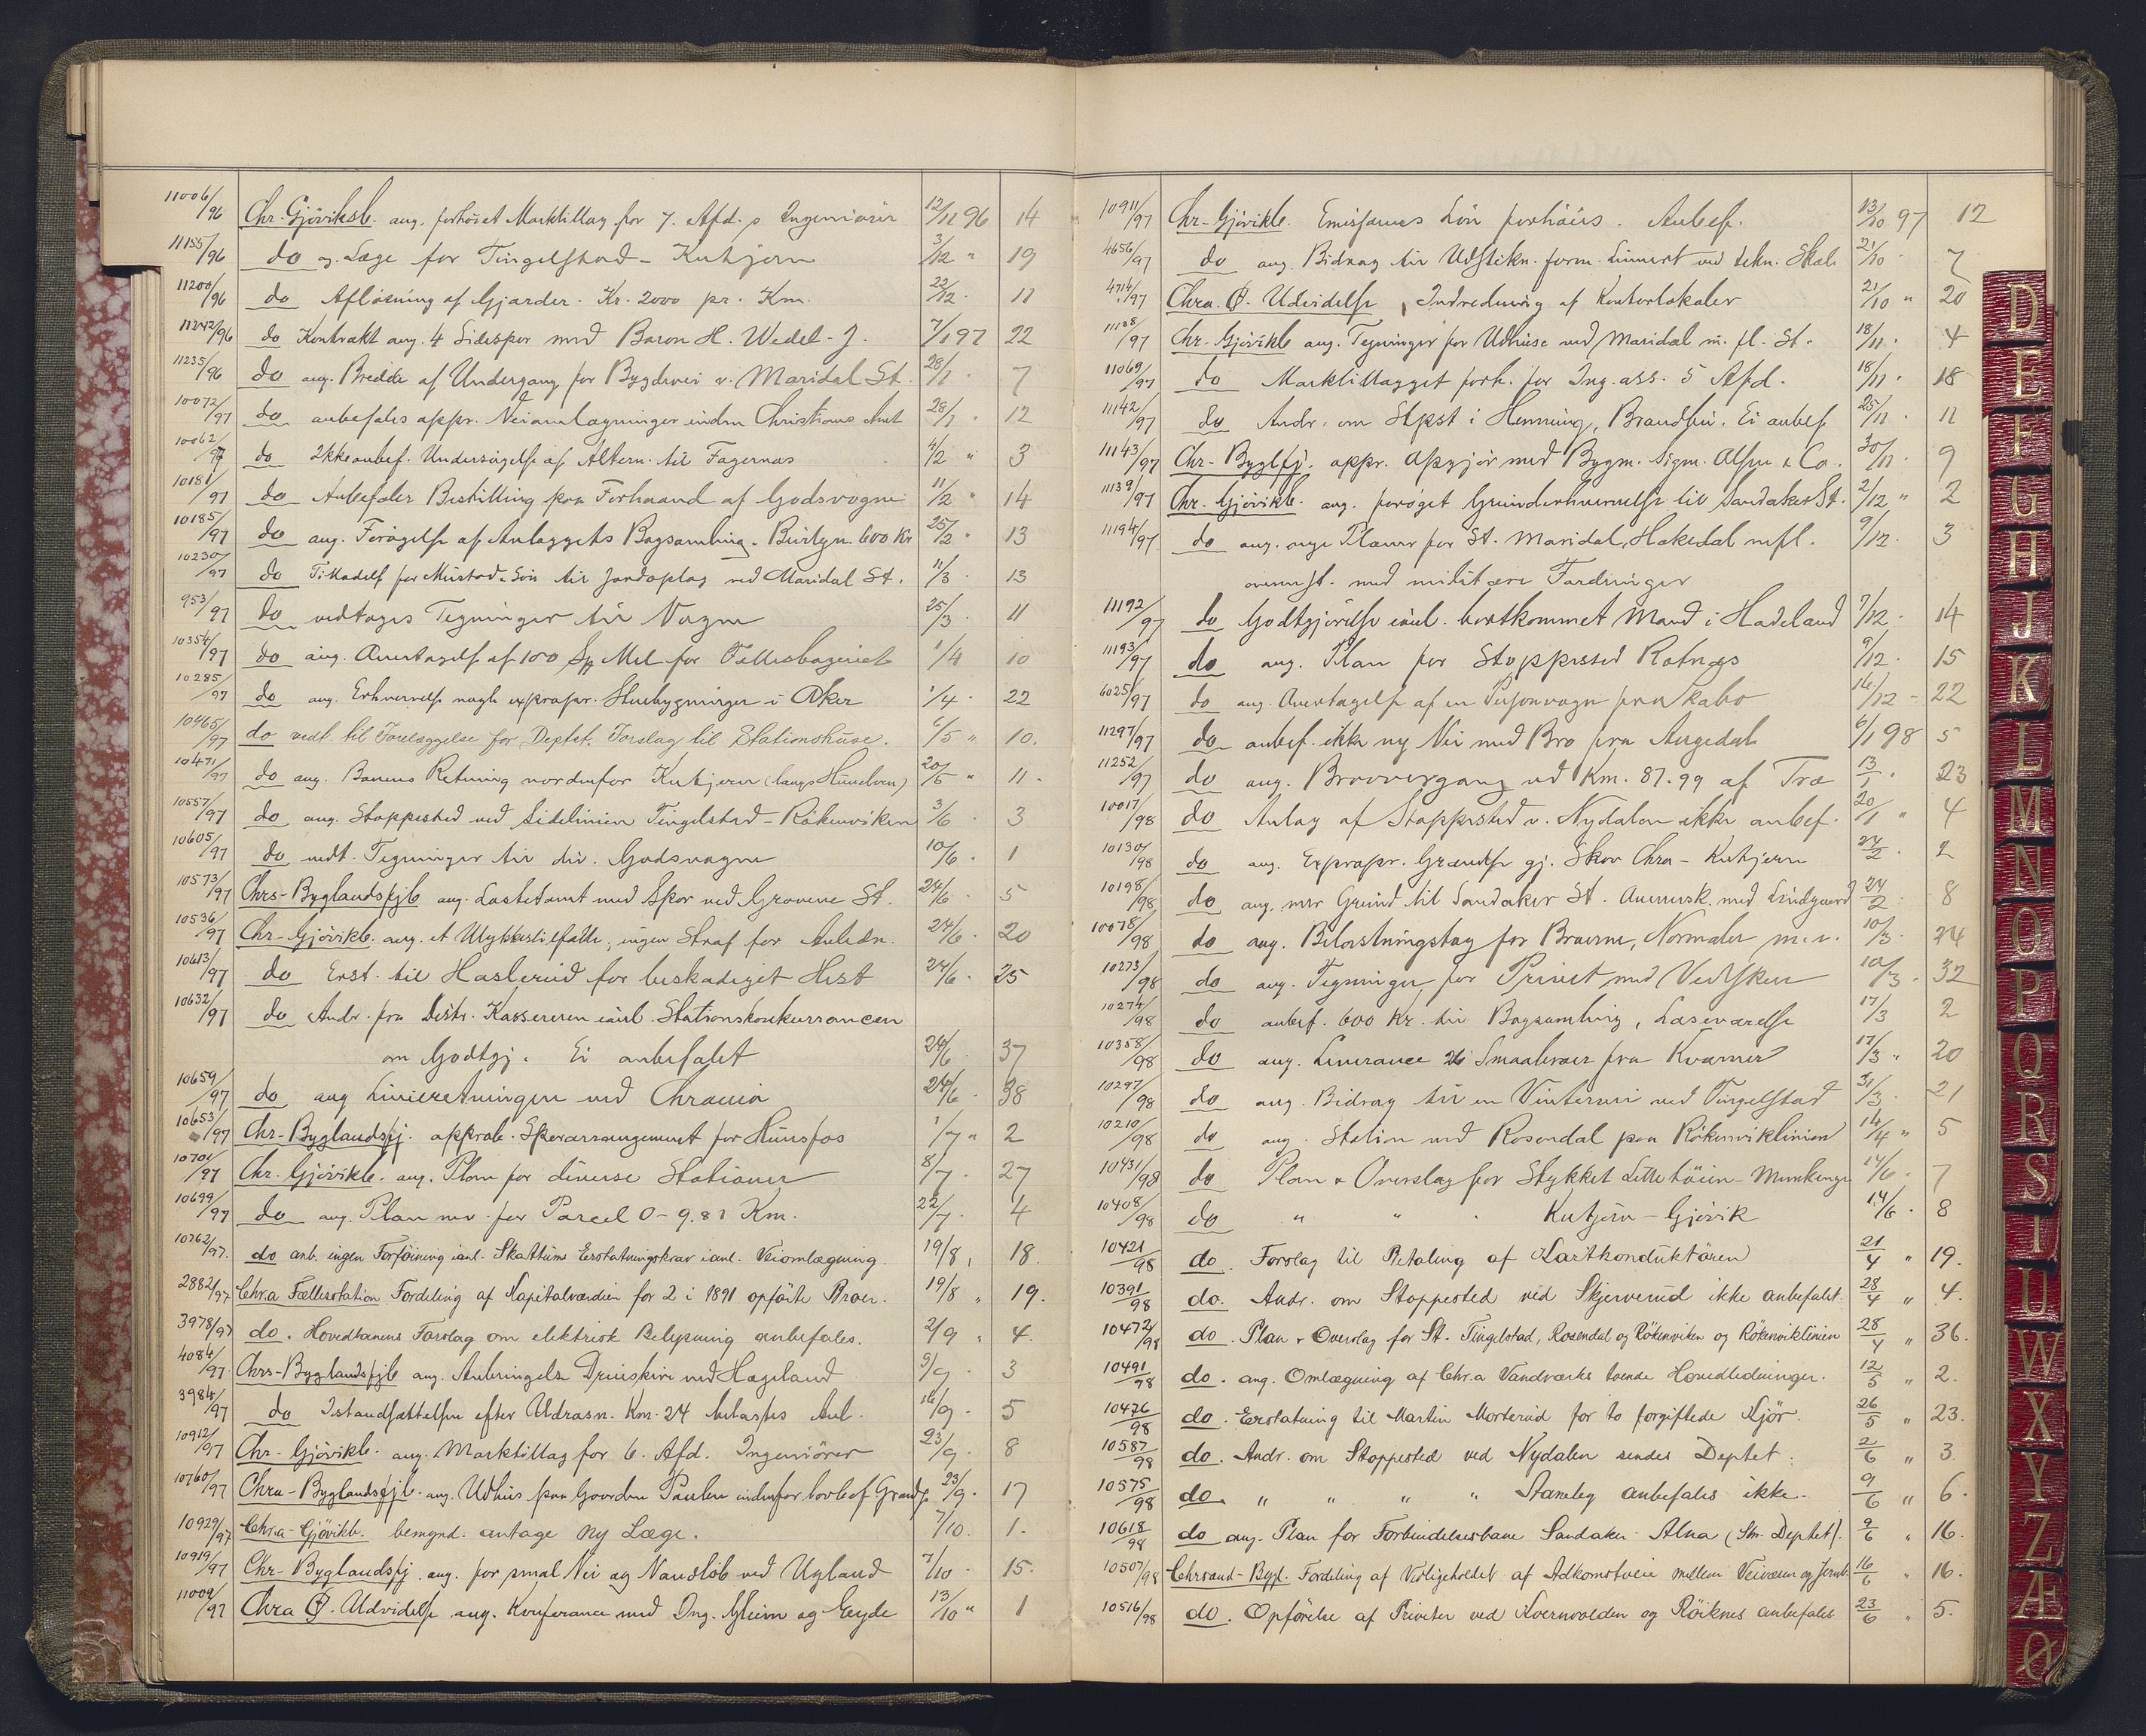 11006/96 Chr. Gjöviksb. ang. forhöiet Marktillæg for 7. Afd. s Ingeniörer 12/11 96 14
11155/96 do Læge for Tingelstad - Kutjern 3/12 " 19
11200/96 do Aflösning af Gjærder. Kr. 2000 pr. Km. 22/12 11
11242/96 do Kontrakt ang. 4 Sidespor med Baron H. Wedel-J. 7/1 97 22
11235/96 do ang. Bredde af Undergang for Bygdevei v. Maridal St. 28/1 7
10072/97 do anbefales appr. Veiomlægninger inden Christians Amt 28/1 12
10062/97 do Ikke anbef. Undersögelse af Altern. til Fagernæs 4/2 " 3
10181/97 do Anbefaler Bestilling paa Forhaand af Godsvogne 11/2 " 14
10185/97 do ang. Forögelse af Anlæggets Bogsamling. Bevilgn. 600 Kr 25/2 13
10230/97 do Tilladelse for Mustad & Sön til Jordoplag ved Maridal St. 11/3 13
953/97 do vedtages Tegninger til Vogne 25/3 11
10354/97 do ang. Overtagelse af 100 Sk Mel for Fællesbageriet 1/4 10
10285/97 do ang. Erhvervelse nogle expropr. Stuebygninger i Aker 1/4 22
10465/97 do vedt. til Forelæggelse for Deptet. Forslag til Stationshuse. 6/5 " 10.
10471/97 do ang. Banens Retning nordenfor Kutjern (langs Hunelven) 20/5 " 11.
10557/97 do ang. Stoppested ved Sidelinien Tingelstad - Rökenviken 3/6 3
10605/97 do vedt. Tegninger til div. Godsvogne 10/6 1
10573/97 Chrs-Byglandsfjb ang. Lastetomt med Spor ved Grovene St. 24/6 5
10536/97 Chr-Gjövikb. ang. et Ulykkestilfælde, ingen Straf for Anledn. 24/6 20
10613/97 do Erst. til Haslerud for beskadiget Hest 24/6 25
10632/97 do Andr. fra Distr. Kassereren ianl. Stationskonkurrancen
om Godtgj. Ei anbefalet 24/6 37
10659/97 do ang Linieretningen ved Chrania 24/6 38
10653/97 Chr-Byglandsfj. approb. Sporarrangement for Hunsfos 1/7 " 2
10701/97 Chr. Gjövikb. ang. Plan for diverse Stationer 8/7 27
10699/97 do ang. Plan mv. for Parcel 0-9.81 Km. 22/7 4
10762/97. do anb. ingen Forföining ianl. Skattums Erstatningskrav ianl. Veiomlægning. 19/8 18.
2882/97 Chr.a Fællesstation Fordeling af Kapitalværdien for 2 i 1891 opförte Broer. 19/8 " 19.
3978/97 do. Hovedbanens Forslag om elektrisk Belysning anbefales. 2/9 " 4.
4084/97 Chrs-Byglandsfjb ang. Anbringelse Dreieskive ved Hægeland 9/9 3
3984/97 do Istandsættelsen efter Udrasn. Km. 24 belastes Anl. 16/9 5
10912/97 Chr-Gjövikb. ang. Marktillæg for 6. Afd. Ingeniörer 23/9 8
10760/97 Chra-Byglandsfjb. ang. Udhus paa Gaarden Paulen indenfor lovbef. Grændse 23/9. 17
10929/97 Chr.a-Gjövikb. bemynd. antage ny Læge. 7/10. 1.
10919/97 Chr-Byglandsfj. ang. for smal Vei og Vandlöb ved Ugland 7/10 15.
11009/97 Chra Ø. Udvidelse ang. Konferance med Ing. Gleim og Eyde 13/10 " 1
10911/97 Chr-Gjövikb. Emissærers Lön forhöies. Anbef. 13/10 97 12
4656/97 do ang. Bidrag til Udstikn. ved tekn. Skole 21/10 7
4714/97 Chra. Ø. Udvidelse, Indredning af Kontorlokaler 21/10 " 20
11138/97 Chr-Gjövikb ang. Tegninger for Udhuse ved Maridal m. fl. St. 18/11. 4
11069/97 do Marktillægget forh. for Ing. ass. 5 Afd. 18/11. 18
11142/97 do Andr. om Stpst i Henning, Brandbu. Ei anbef 25/11. 11
11143/97 Chr-Byglfj. appr. Opgjör med Bygm. Sigm. Olsen & Co. 30/11. 9
11139/97 Chr. Gjövikb. ang. foröget Grunderhvervelse til Sandaker St. 2/12 " 2
11194/97 do ang. nye Planer for St. Maridal, Hakedal mfl. 9/12. 3
overensst. med militære Fordringer
11192/97 do Godtgjörelse ianl. bortkommet Mand i Hadeland 7/12. 14
11193/97 do ang. Plan for Stoppested Rotnæs 9/12. 15
6025/97 do ang. Overtagelse af en Personvogn fra Skabo 16/12 - 22
11297/97 do anbef. ikke ny Vei med Bro fra Augedal 6/1 98 5
11252/97 do ang. Broovergang ved Km. 87.99 af Træ 13/1. 23
10017/98 do Anlæg af Stoppested v. Nydalen ikke anbef. 20/1 " 4
10130/98 do ang. Expropr. Grændse gj. Skov Chra - Kutjern 24/2. 2
10198/98 do ang. mer Grund til Sandaker St. Overensk. med Lindgaard 24/2 8
10078/98 do ang. Belastningstog for Broerne, Normaler m.v. 10/3. 24
10273/98 do ang. Tegninger for Privet med Vedskur 10/3. 32
10274/98 do anbef. 600 Kr. til Bogsamling, Læseværelse 17/3 2
10358/98 do ang. Leverance 26 Smaabroer fra Kværner 17/3 " 20
10297/98 do ang. Bidrag til en Vintervei ved Tingelstad 31/3. 21
10210/98 do ang. Station ved Rosendal paa Rökenviklinien 14/4 " 5
10431/98 do Plan & Overslag for Stykket Lilletöien - Munkenga 14/6. 7
10408/98 do " " " Kutjern - Gjövik 14/6. 8
10421/98 do. Forslag til Betaling af Kartkonduktören 21/4 " 19.
10391/98 do. Andr. om Stoppested ved Skjerverud ikke anbefalet. 28/4 " 4.
10472/98 do. Plan & Overslag for St. Tingelstad, Rosendal og Rökenviken og Rökenviklinien 28/4 " 36.
10491/98 do. ang. Omlægning af Chr.a Vandværks tvende Hovedledninger. 12/5 " 2.
10476/98 do. Erstatning til Martin Morterud for to forgiftede Kjör. 26/5 " 23.
10587/98 do. Andr. om Stoppested ved Nydalen sendes Deptet. 2/6 " 3
10575/98 do. " " " " Stameleg anbefales ikke. 9/6 " 6.
10618/98 do ang. Plan for Forbindelsesbane Sandaker - Alna (Skr. Deptet). 9/6 " 16.
10507/98 Chrsand-Bygl. Fordeling af Vedligeholdet af Adkomstveie mellem Veivæsen og Jernb. 16/6 " 16.
10516/98 do. Opförelse af Priveter ved Kvernvolden og Röiknes anbefales 23/6 " 5.
D
E
F
G
H
J
K
L
M
N
O
P
Q
R
S
T
U
W
X
Y
Z
Æ
Ø